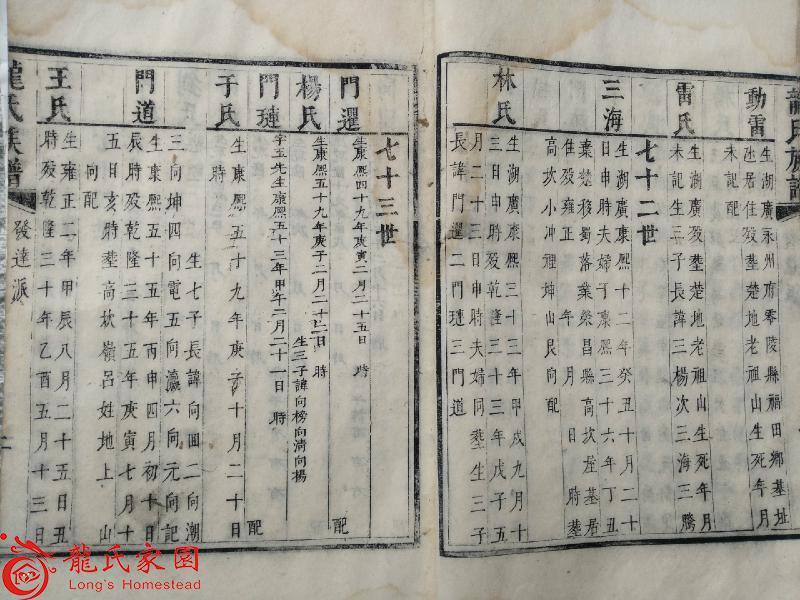 龍氏族譜
動雷
生湖廣永州府零陵縣福田鄉基址
迯居住殁塟楚地老祖山生死年月
未記配
雷氏
生湖廣殁塟楚地老祖山生死年月
未記生三子長諱三楊次三海三騰
七十二世
三海
生湖廣康熙十二年癸丑十月二十
日申時夫婦于康熙三十六年丁丑
棄楚移蜀落業榮昌縣高坎垕基居
住殁雍正 年 月 日 時塟
高坎小冲裡坤山艮向配
林氏
生湖廣康熙三十三年甲戌九月十
三日申時殁乾隆三十三年戊子五
月二十三日申時夫婦同塟生三子
長諱門暹二門璉三門道
七十三世
門暹
生康熙四十九年庚寅二月二十五日 時 配
楊氏
生康熙五十九年庚子二月二十二日 時 生三子諱向榜向淸向楊
門璉
字玉先生康熙五十三年甲午二月二十一日 時 配
于氏
生康熙五十九年庚子十月二十日
時
生七子長諱向囬二向潮
三向坤四向電五向瀛六向元向記
門道
生康熙五十五年丙申四月初十日
辰時殁乾隆三十五年庚寅七月十
五日亥時塟高坎嶺呂姓地上 山
向配
王氏
生雍正二年甲辰八月二十五日丑
時殁乾隆三十年乙酉五月十三日
龍氏族譜
發達派
二
龍氏家園
Long's Homestead